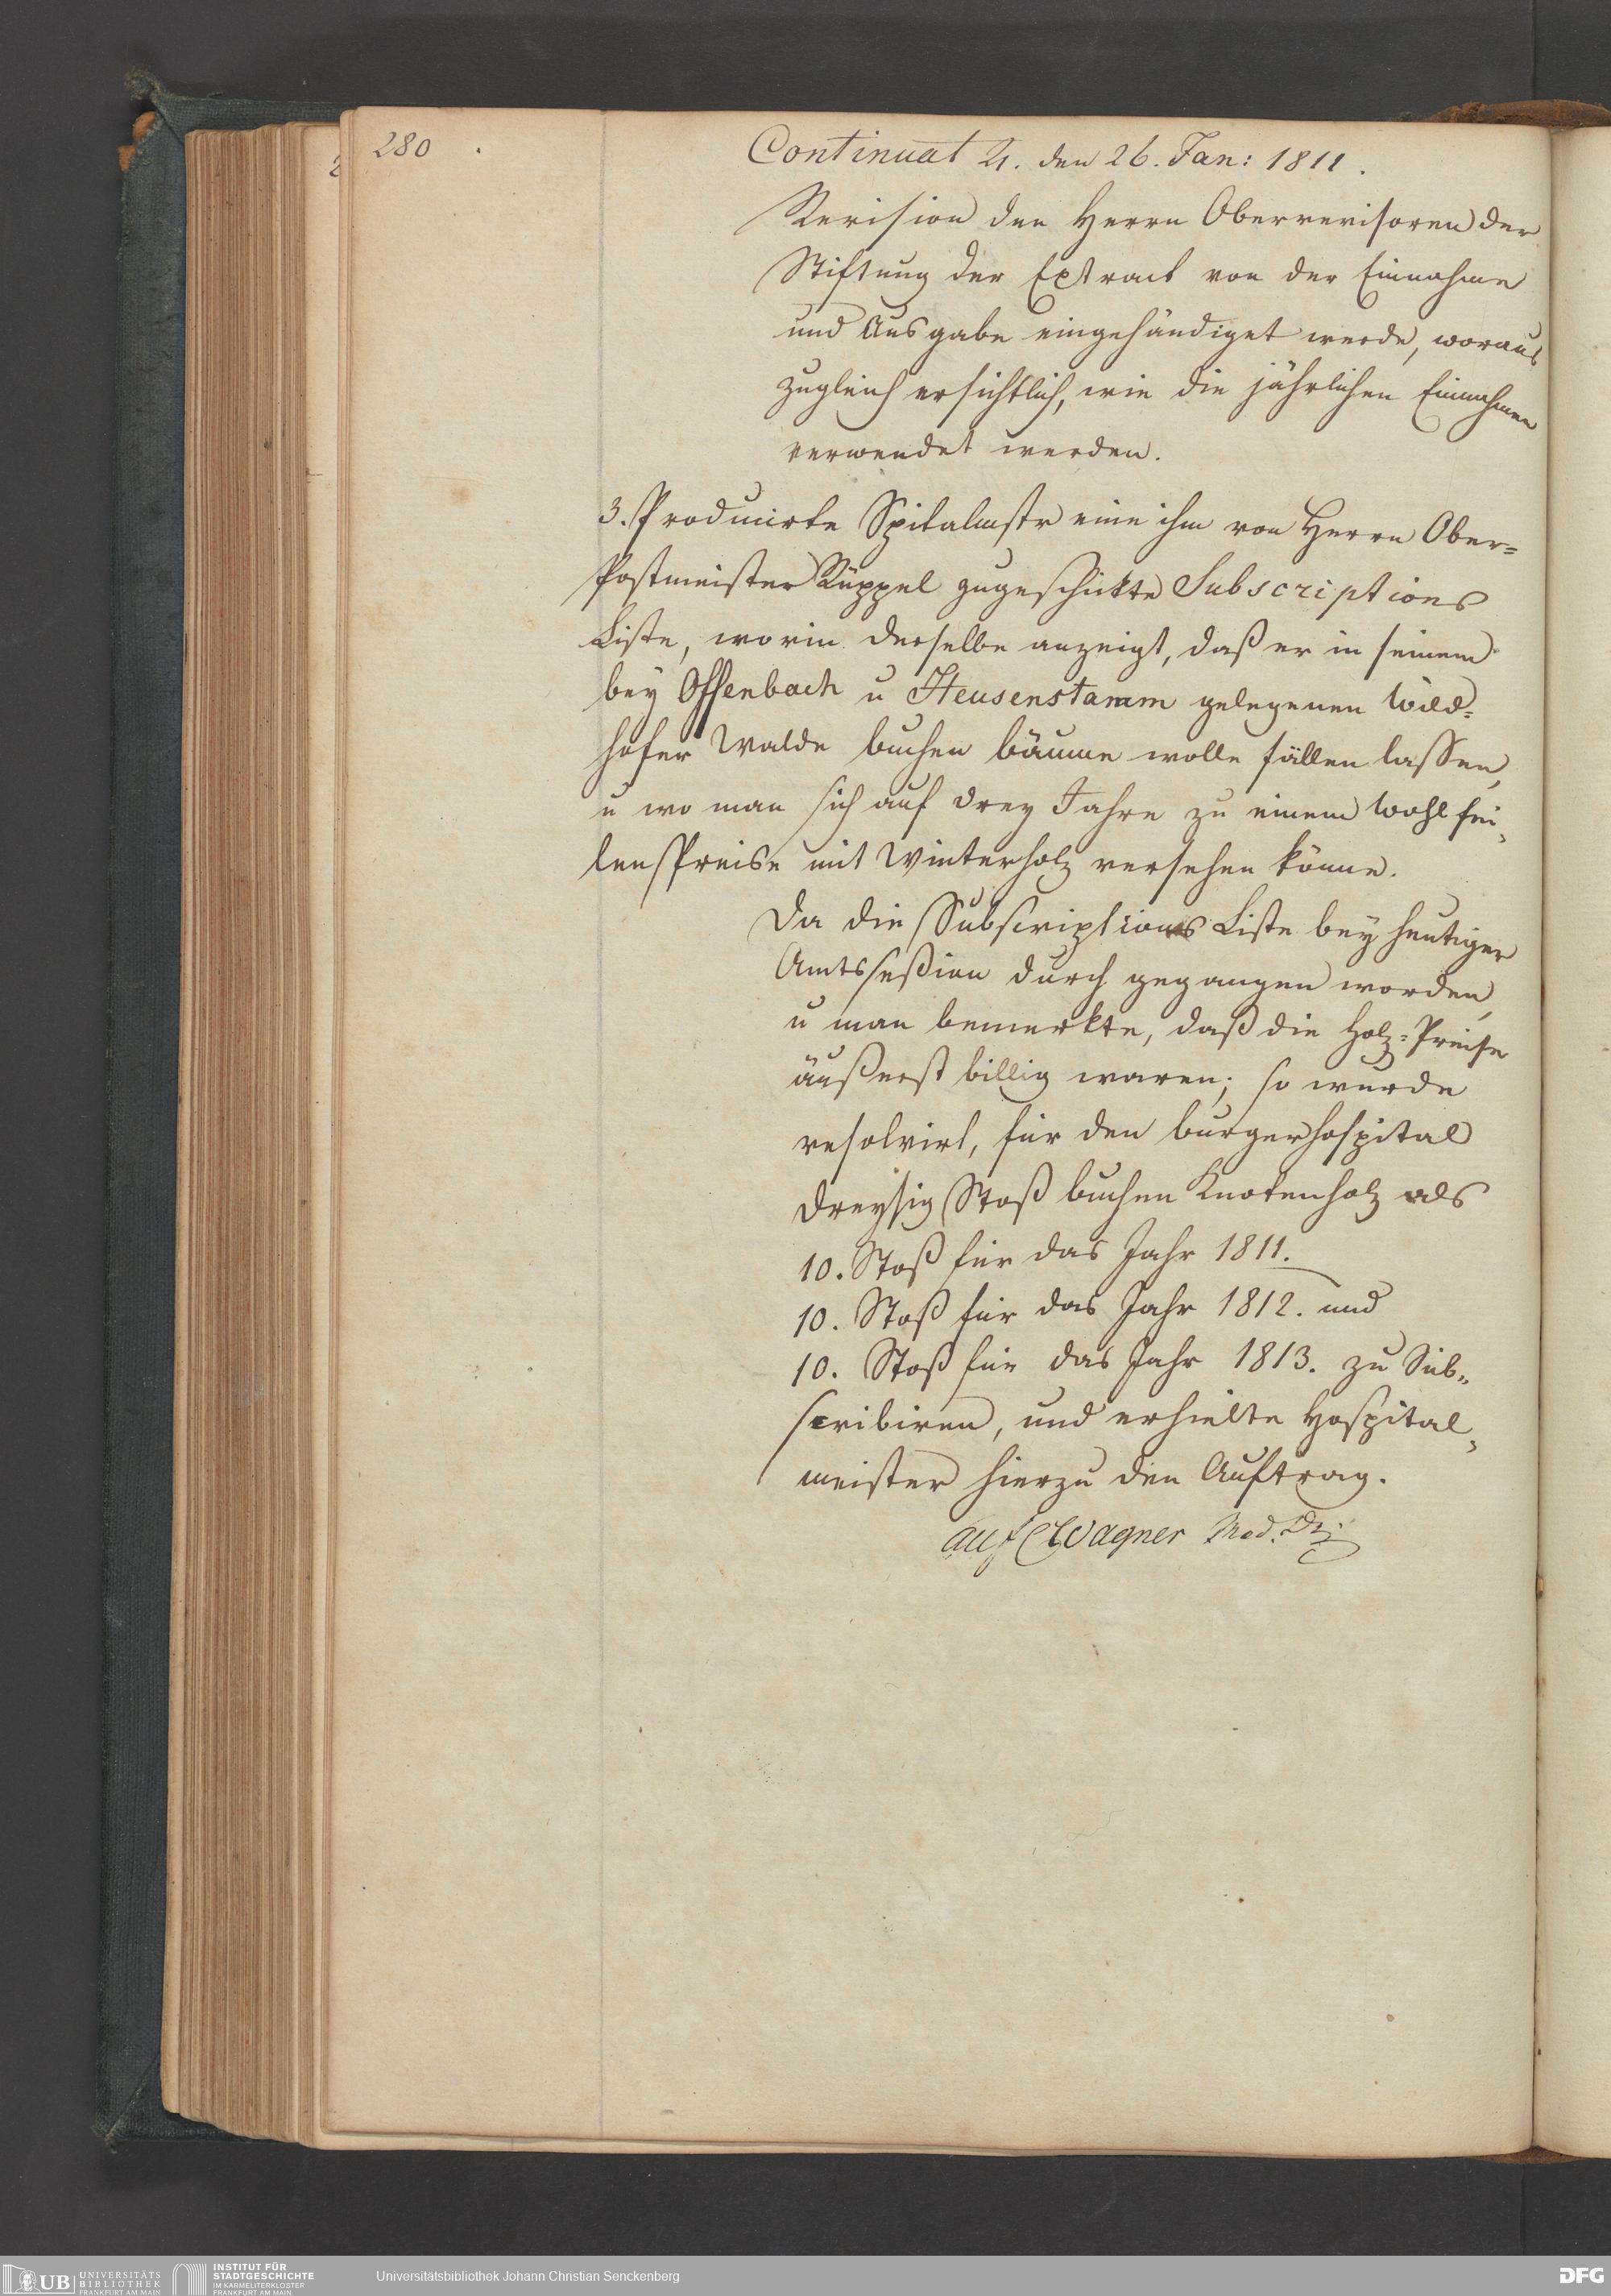 280
Continuat ♃. den 26. Jan: 1811.
Revision den Herrn Oberrevisoren der
Stiftung der Extract von der Einnahme
und Ausgabe eingehändiget werde, woraus
zugleich ersichtlich, wie die jährlichen Einnahmen
verwendet werden.
3. Producirte Spitalmstr eine ihm von Herrn Ober=
Postmeister Rüppel zugeschickte Subscriptions
Liste, worin derselbe anzeigt, daß er in seinem
bey Offenbach u Heusenstamm gelegenen Wild=
hofer Walde buchen bäume wolle fällen lassen,
u wo man sich auf drey Jahre zu einem wohlfei,
len Preise mit Winterholz versehen könne.
Da die Subscriptions Liste bey heutiger
Amtssession durch gegangen worden,
u man bemerkte, daß die Holz=Preise
äußerst billig waren; so wurde
resolvirt, für den burgerhospital
dreysig Stoß buchen Knotenholz als
10. Stoß für das Jahr 1811.
10. Stoß für das Jahr 1812. und
10. Stoß für das Jahr 1813. zu Sub„
scribiren, und erhielte Hospital„
meister hierzu den Auftrag.
Wagner Med. Dr.
UB UNIVERSITÄTS
BIBLIOTHEK
FRANKFURT AM MAIN
INSTITUT FÜR
STADTGESCHICHTE
IM KARMELITERKLOSTER
FRANKFURT AM MAIN
Universitätsbibliothek Johann Christian Senckenberg
DFG